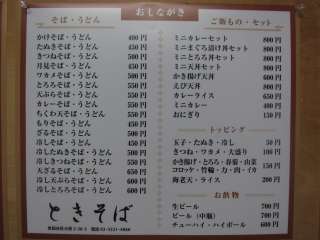 おしながき
そば・うどん
かけそば・うどん 400円
たぬきそば・うどん 450円
きつねそば・うどん 500円
月見そば・うどん 450円
ワカメそば・うどん 500円
とろろそば・うどん 550円
天ぷらそば・うどん
カレーそば・うどん 550円
ちくわ天そば・うどん
もりそば・うどん
ざるそば・うどん 500円
冷しそば・うどん 500円
冷したぬきそば・うどん 500円
冷しきつねそば・うどん 550円
冷しワカメそば・うどん 550円
冷し天ぷらそば・うどん 600円
冷しとろろそば・うどん 600円
ときそば
ご飯もの・セット
ミニカレーセット 800円
ミニまぐろ漬け丼セット 800円
ミニとろろ丼セット 800円
ミニ天丼セット 800円
かき揚げ天丼
えび天丼 800円
カレーライス 650円
ミニカレー 400円
おにぎり 150円
トッピング
玉子・たぬき・冷し 50円
きつね・ワカメ・大盛り 100円
かき揚げ・とろろ・春菊・山菜
コロッケ・竹輪・力・肉・イカ 150円
海老天・ライス 200円
お飲物
生ビール 700円
ビール（中瓶） 700円
チューハイ・ハイボール 600円